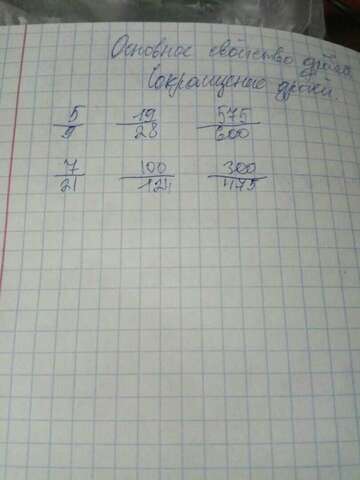 Основное свойство дроби
Сокращение дробей.
5/9 19/28 575/600
7/21 100/124 300/475